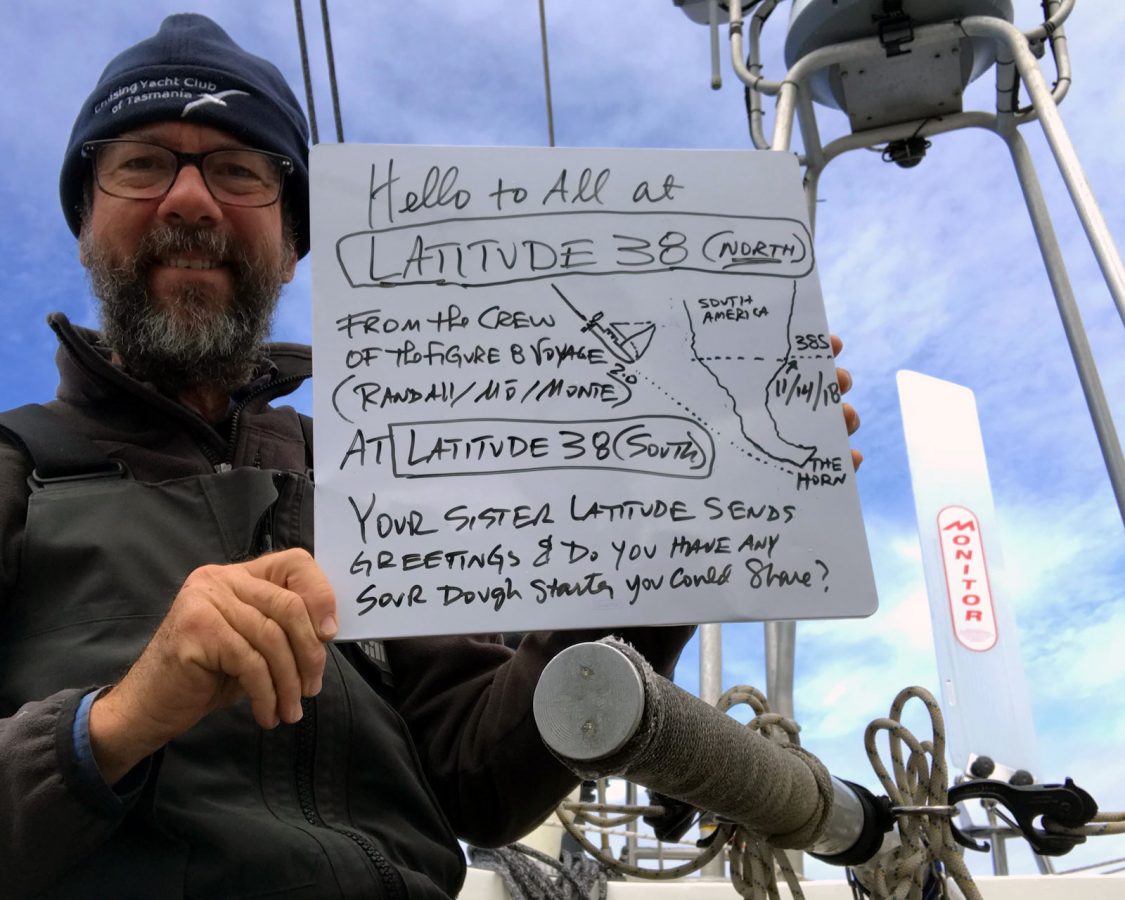 Cruising Yacht Club
of Tasmania
Hello to All at
LATITUDE 38 (NORTH)
FROM the CREW
OF the FIGURE 8 VOYAGE
2.0
(RANDAll/MŌ/MONTE)
AT LATITUDE 38 (SOUTH)
SOUTH
AMERICA
38S
11/14/18
THE
HORN
YOUR SISTER LATITUDE SENDS
GREETINGS & DO YOU HAVE ANY
SOUR DOUGH Starter you Could Share?
MONITOR